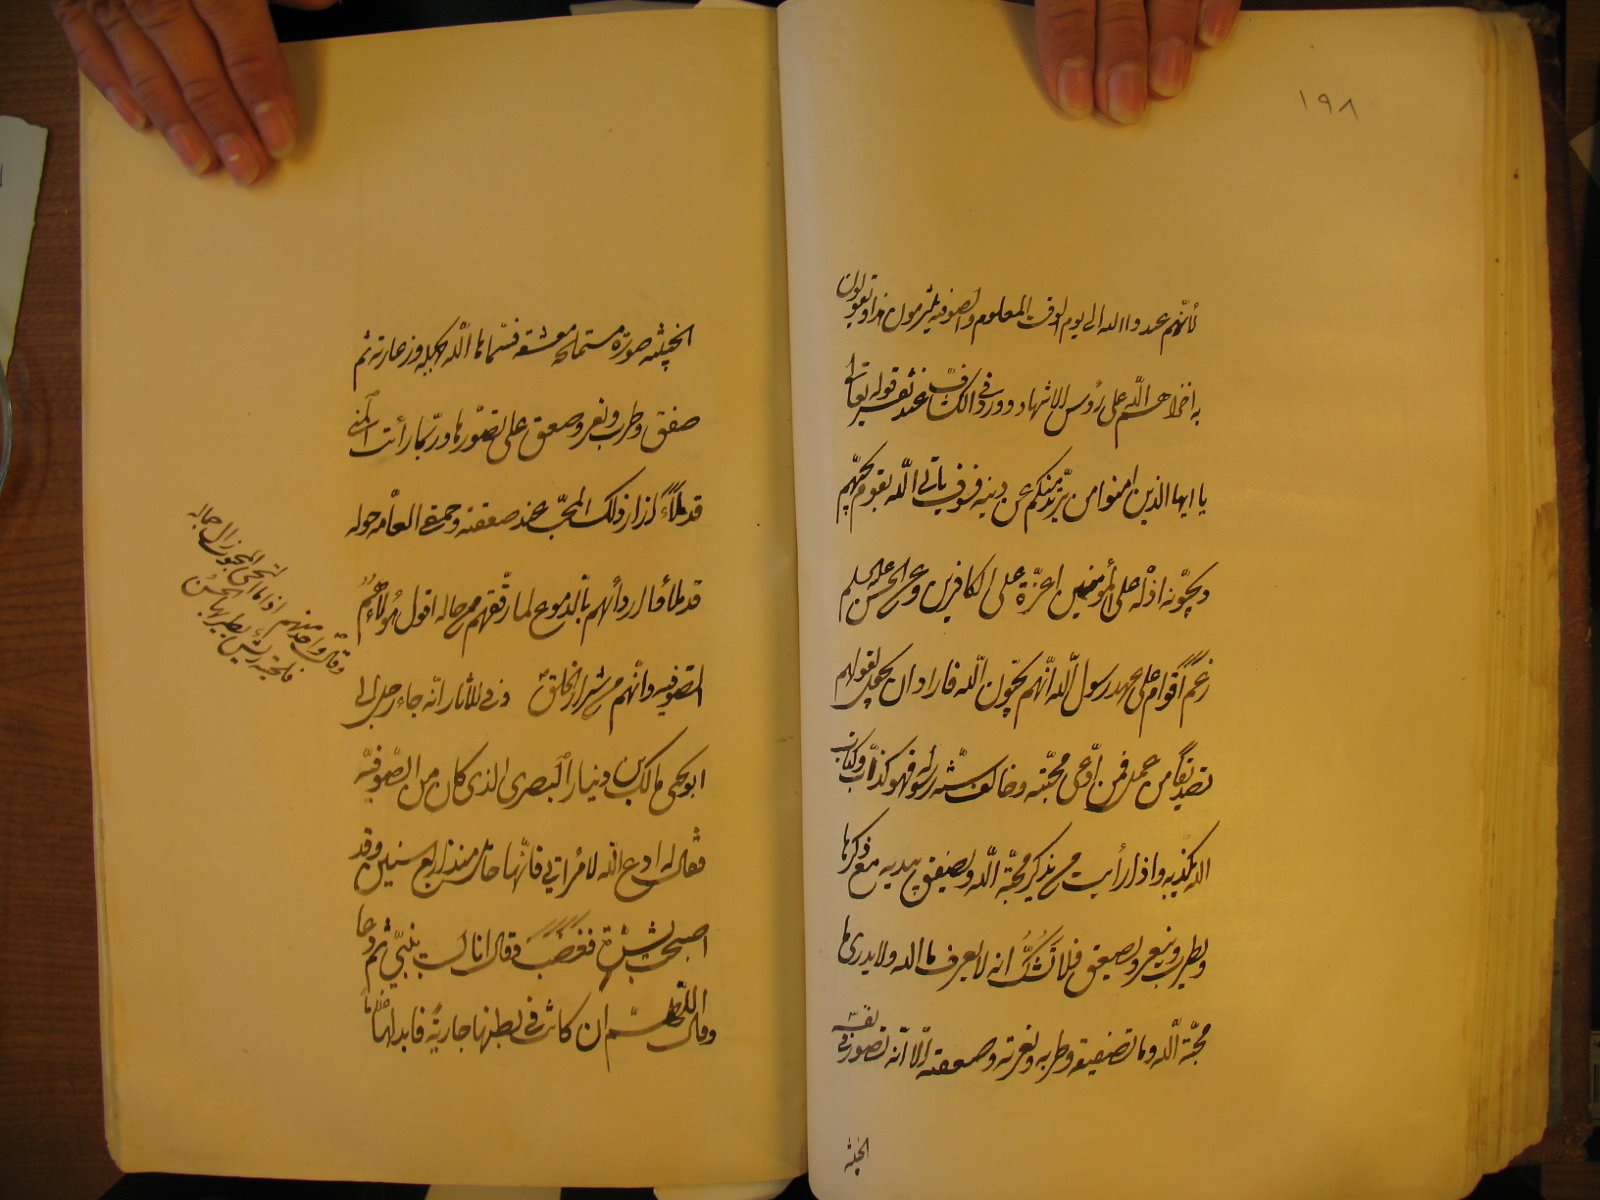 ١٩٨
لأنهم عبدوا الله الى يوم الوقت المعلوم والصوفية يلتزمون هذا ويقولون
به اخزاهم الله على رؤس الاشهاد وورد فى الكشاف عند تفسير قوله تعالى
يا ايها الذين امنوا من يرتد منكم عن دينه فسوف يأتى الله بقوم يحبهم
ويحبونه اذلة على المؤمنين اعزة على الكافرين وعن الحسن عليه السلم
زعم اقوام على عهد رسول الله انهم يحبون الله فاراد ان يجعل لقولهم
تصديقا من عمل فمن ادعى محبته وخالف سنة رسوله فهو كذاب وكتاب
الله يكذبه واذا رأيت من يذكر محبة الله ويصفق بيديه مع ذكرها
ويطرب وينعر ويصعق فلا تشك انه لا يعرف ما الله ولا يدرى ما
محبة الله وما تصفيقه وطربه ونعرته وصعقته الا انه تصور فى نفسه
الخبيثة
الخبيثة صورة مستملحة معشقة فسماها الله بجهله وزعارته ثم
صفق وطرب ونعر وصعق على تصورها وربما رأيت المنى
قد ملأ ازار ذلك المحب عند صعقته وحمقى العامة حوله
قد ملأوا اردانهم بالدموع لما رققهم من حاله اقول هؤلاء هم
المتصوفية وانهم من شرار الخلق وفى الاثار انه جاء رجل الى
ابو يحيى مالك بن دينار البصرى الذى كان من الصوفية
فقال له ادع الله لامرأتى فانها حامل منذ اربع سنين وقد
اصبحت فغضب وقال انا لست بنبى ثم دعا
وقال اللهم ان كانت فى بطنها جارية فابدلها غلاما
وقال واحد منهم اذا ما التحى المحبوب زال جماله
فلحيته ريش يطير بها الحسن